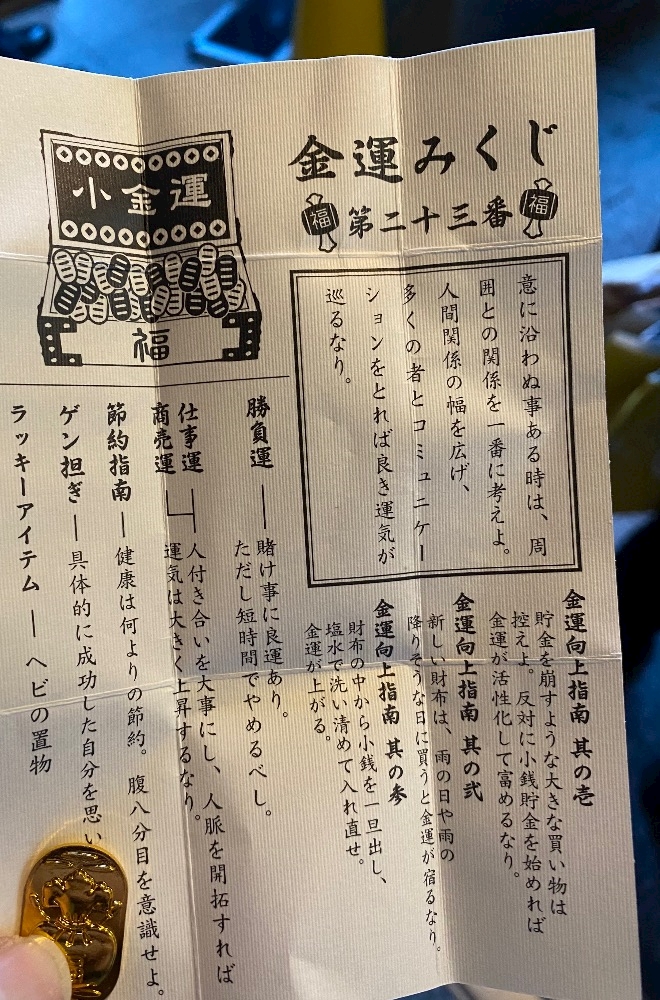 金運みくじ
福 第二十三番 福
小金運
福
意に沿わぬ事ある時は、周
囲との関係を一番に考えよ。
人間関係の幅を広げ、
多くの者とコミュニケー
ションをとれば良き運気が
巡るなり。
金運向上指南 其の壱
貯金を崩すような大きな買い物は
控えよ。反対に小銭貯金を始めれば
金運が活性化して富めるなり。
金運向上指南 其の弐
新しい財布は、雨の日や雨の
降りそうな日に買うと金運が宿るなり。
金運向上指南 其の参
財布の中から小銭を一旦出し、
塩水で洗い清めて入れ直せ。
金運が上がる。
勝負運 ― 賭け事に良運あり。
ただし短時間でやめるべし。
仕事運
商売運
人付き合いを大事にし、人脈を開拓すれば
運気は大きく上昇するなり。
節約指南 ― 健康は何よりの節約。腹八分目を意識せよ。
ゲン担ぎ ― 具体的に成功した自分を思い
ラッキーアイテム ― ヘビの置物